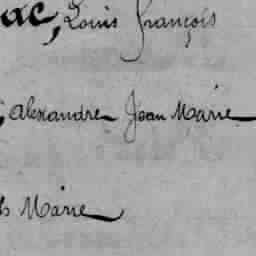 ac, Louis françois
, alexandre Jean Marie
s Marie